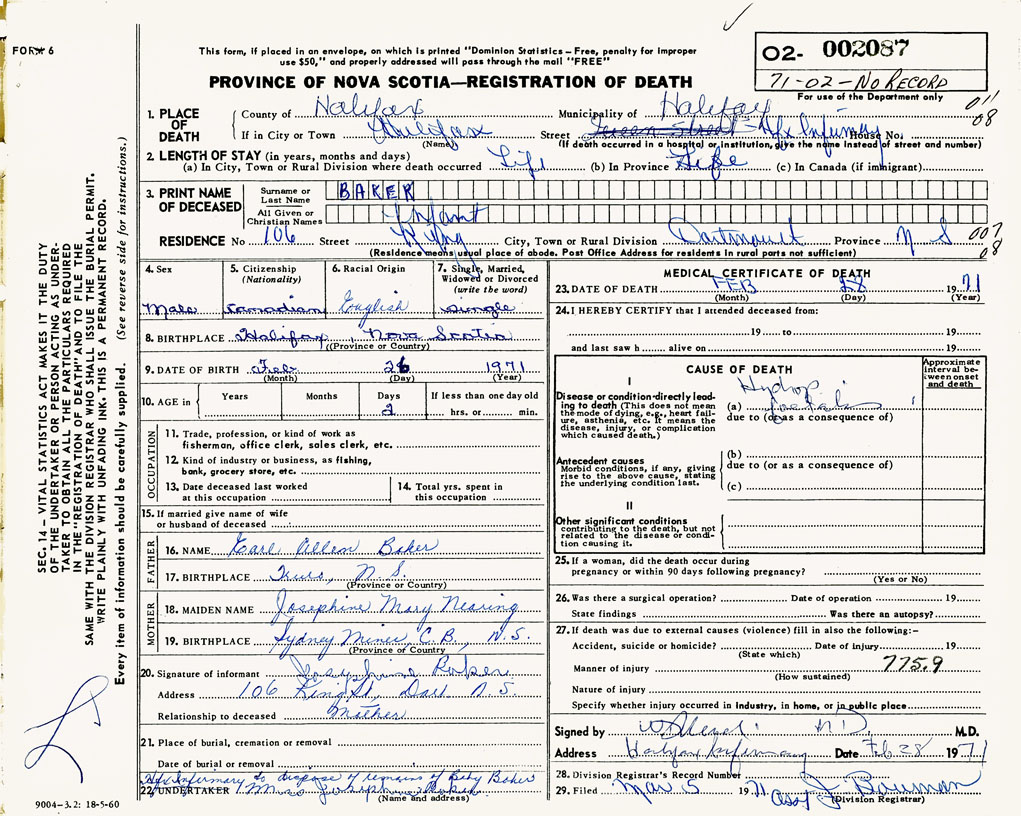 FORM 6
This form, if placed in an envelope, on which is printed "Dominion Statistics – Free, penalty for improper
use $50," and properly addressed will pass through the mail "FREE"
PROVINCE OF NOVA SCOTIA—REGISTRATION OF DEATH
02- 002087
71-02-NO RECORD
For use of the Department only
011
08
1. PLACE OF DEATH
County of Halifax Municipality of Halifax
If in City or Town Halifax Street Queen Street - Hfx Infirmary House No.
(Name) (If death occurred in a hospital or institution, give the name instead of street and number)
2. LENGTH OF STAY (in years, months and days)
(a) In City, Town or Rural Division where death occurred Life (b) In Province Life (c) In Canada (if immigrant)
3. PRINT NAME OF DECEASED
Surname or Last Name BAKER
All Given or Christian Names Infant
RESIDENCE No 106 Street King City, Town or Rural Division Dartmouth Province N S
007
08
(Residence means usual place of abode. Post Office Address for residents in rural parts not sufficient)
4. Sex Male
5. Citizenship (Nationality) Canadian
6. Racial Origin English
7. Single, Married, Widowed or Divorced (write the word) Single
8. BIRTHPLACE Halifax, Nova Scotia
(Province or Country)
9. DATE OF BIRTH Feb 26 1971
(Month) (Day) (Year)
10. AGE in Years Months Days 2 If less than one day old hrs. or min.
OCCUPATION
11. Trade, profession, or kind of work as
fisherman, office clerk, sales clerk, etc.
12. Kind of industry or business, as fishing,
bank, grocery store, etc.
13. Date deceased last worked
at this occupation
14. Total yrs. spent in
this occupation
15. If married give name of wife
or husband of deceased
FATHER
16. NAME Earl Allen Baker
17. BIRTHPLACE Truro, N.S.
(Province or Country)
MOTHER
18. MAIDEN NAME Josephine Mary Nearing
19. BIRTHPLACE Sydney Mines, C.B., N.S.
(Province or Country)
20. Signature of informant Josephine Baker
Address 106 King St, Dart N.S.
Relationship to deceased Mother
21. Place of burial, cremation or removal
Date of burial or removal
Hfx Infirmary to dispose of remains of Baby Baker
22. UNDERTAKER Mrs Josephine Baker
(Name and address)
MEDICAL CERTIFICATE OF DEATH
23. DATE OF DEATH FEB 28 1971
(Month) (Day) (Year)
24. I HEREBY CERTIFY that I attended deceased from:
19 to 19
and last saw h alive on 19
CAUSE OF DEATH
Approximate interval between onset and death
I
Disease or condition directly leading to death (This does not mean the mode of dying, e.g., heart failure, asthenia, etc. It means the disease, injury, or complication which caused death.)
(a) Hydrops foetalis
due to (or as a consequence of)
Antecedent causes
Morbid conditions, if any, giving rise to the above cause, stating the underlying condition last.
(b)
due to (or as a consequence of)
(c)
II
Other significant conditions
contributing to the death, but not related to the disease or condition causing it.
25. If a woman, did the death occur during
pregnancy or within 90 days following pregnancy?
(Yes or No)
26. Was there a surgical operation? Date of operation 19
State findings Was there an autopsy?
27. If death was due to external causes (violence) fill in also the following:–
Accident, suicide or homicide? Date of injury 19
(State which)
Manner of injury 775.9
(How sustained)
Nature of injury
Specify whether injury occurred in industry, in home, or in public place
Signed by MD M.D.
Address Halifax Infirmary Date Feb 28 1971
28. Division Registrar's Record Number
29. Filed Mar 5 1971 Asst J Bauman
(Division Registrar)
SEC. 14 – VITAL STATISTICS ACT MAKES IT THE DUTY
OF THE UNDERTAKER OR PERSON ACTING AS UNDER-
TAKER TO OBTAIN ALL THE PARTICULARS REQUIRED
IN THE "REGISTRATION OF DEATH" AND TO FILE THE
SAME WITH THE DIVISION REGISTRAR WHO SHALL ISSUE THE BURIAL PERMIT.
WRITE PLAINLY WITH UNFADING INK. THIS IS A PERMANENT RECORD.
Every item of information should be carefully supplied. (See reverse side for instructions.)
9004-3.2: 18-5-60